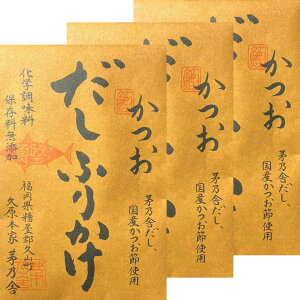 かつお
だしふりかけ
茅乃舎だし、
国産かつお節使用
化学調味料
保存料無添加
福岡県糟屋郡久山町
久原本家 茅乃舎
かつお
茅乃舎だし、
国産かつお節使用
かつお
茅乃舎だし、
国産かつお節使用